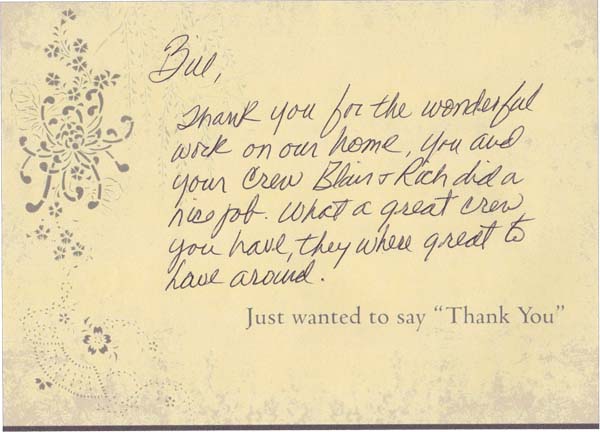 Bill,
Thank you for the wonderful
work on our home, you and
your Crew Blair & Rich did a
nice job. What a great crew
you have, they where great to
have around.
Just wanted to say “Thank You”